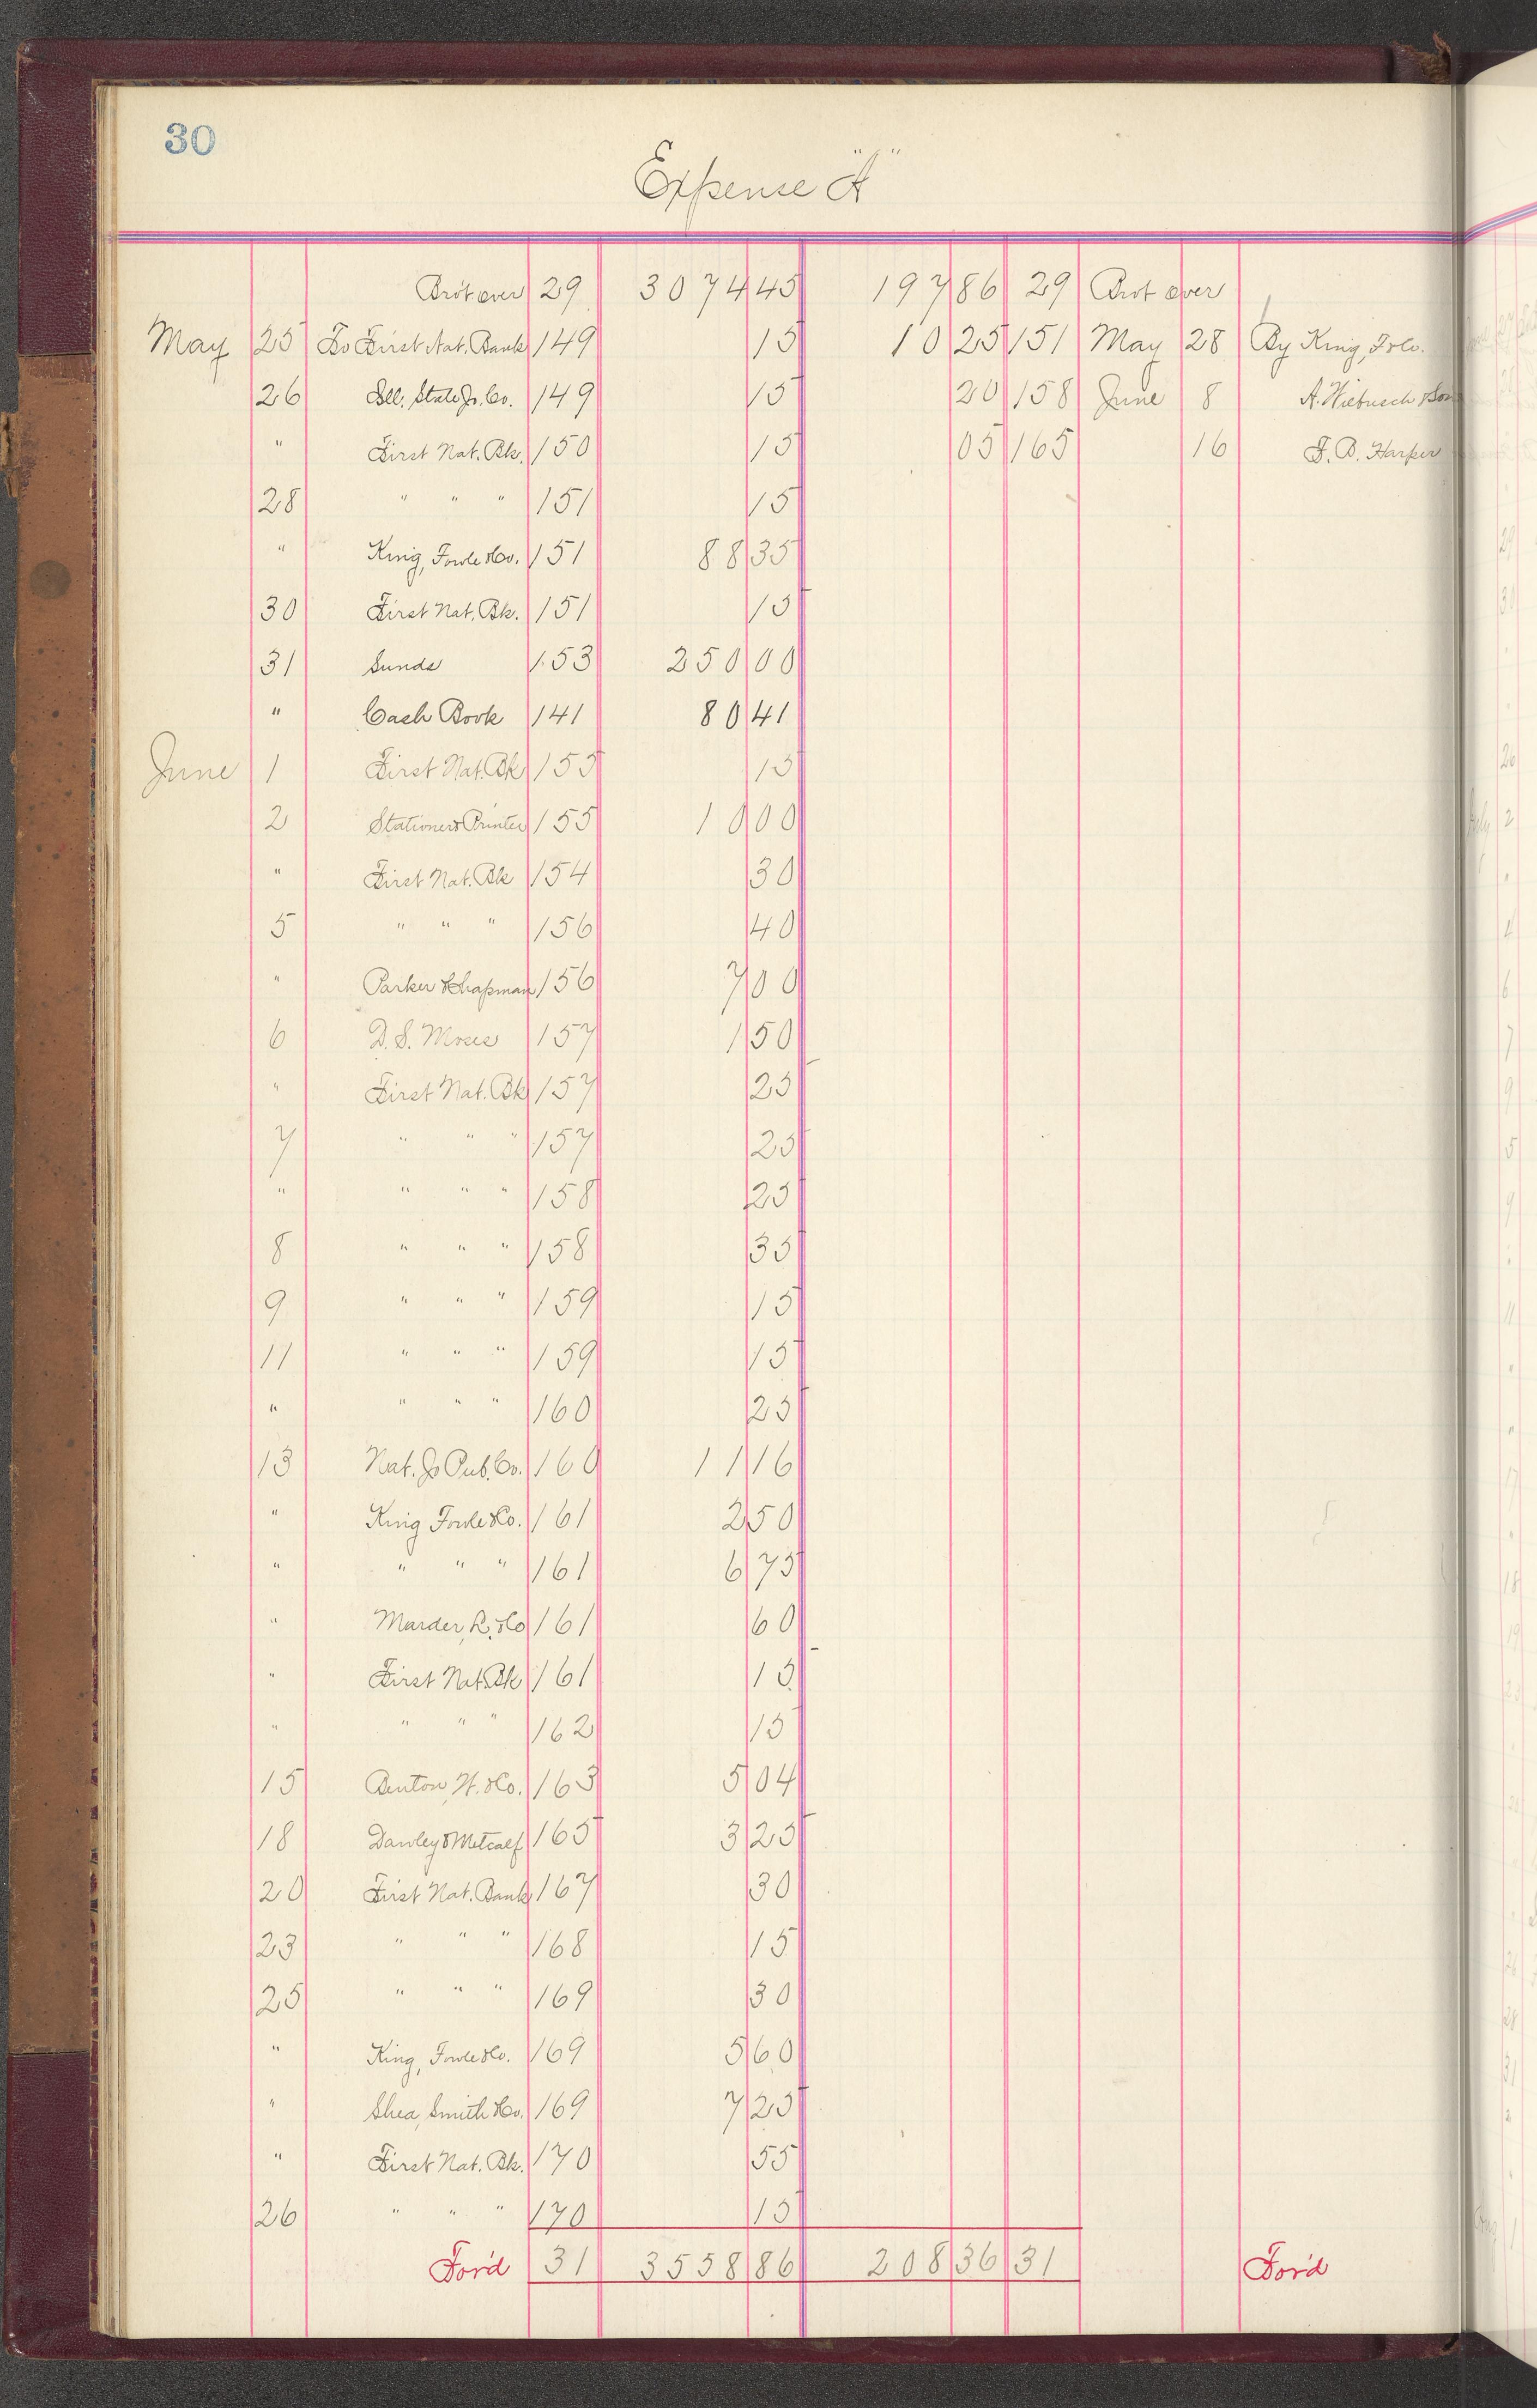 30
Expense "A"
Bro't over 29 3074 45 197 86 29 Bro't over
May 25 To First Nat. Bank 149 15 10 25 151 May 28 By King, F & Co.
26 Ill. State Jo. Co. 149 15 20 158 June 8 A. Wiebusch & Son
" First Nat. Bk. 150 15 05 165 16 F. B. Harper
28 " " " 151 15
" King, Fowle & Co. 151 88 35
30 First Nat. Bk. 151 15
31 Sunds 153 250 00
" Cash Book 141 80 41
June 1 First Nat. Bk 155 15
2 Stationer & Printer 155 10 00
" First Nat. Bk 154 30
5 " " " 156 40
" Parker & Chapman 156 7 00
6 D. S. Moses 157 1 50
" First Nat. Bk 157 25
7 " " " 157 25
" " " " 158 25
8 " " " 158 35
9 " " " 159 15
11 " " " 159 15
" " " " 160 25
13 Nat. Jo Pub. Co. 160 11 16
" King Fowle & Co. 161 2 50
" " " " 161 6 75
" Marder, L. & Co 161 60
" First Nat. Bk 161 15
" " " " 162 15
15 Benton, W. & Co. 163 5 04
18 Dawley & Metcalf 165 3 25
20 First Nat. Bank 167 30
23 " " " 168 15
25 " " " 169 30
" King, Fowle & Co. 169 5 60
" Shea, Smith & Co. 169 7 25
" First Nat. Bk. 170 55
26 " " " 170 15
For'd 31 3558 86 208 36 31 For'd